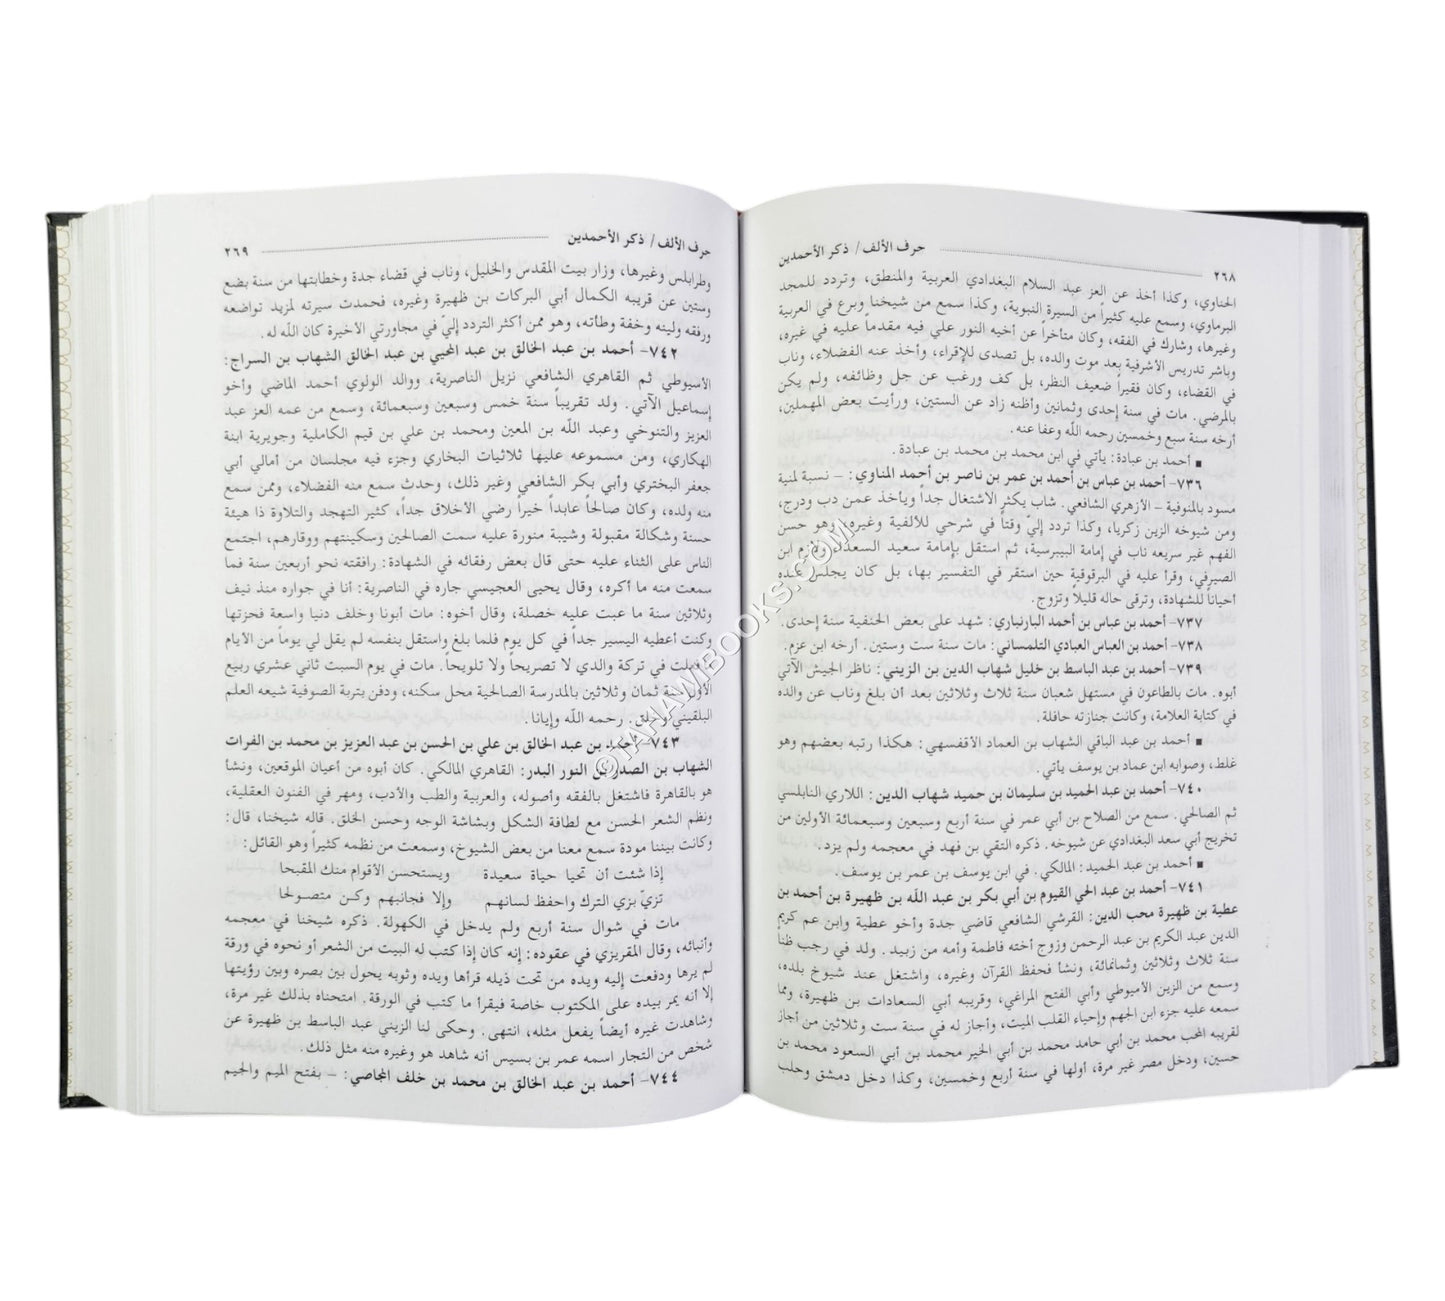 ٢٦٨ حرف الألف/ ذكر الأحمدين
الحناوي، وكذا أخذ عن العز عبد السلام البغدادي العربية والمنطق، وتردد للمجد
البرماوي، وسمع عليه كثيراً من السيرة النبوية، وكذا سمع من شيخنا وبرع في العربية
وغيرها، وشارك في الفقه، وكان متأخراً عن أخيه النور علي فيه مقدماً عليه في غيره،
وباشر تدريس الأشرفية بعد موت والده، بل تصدى للإقراء، وأخذ عنه الفضلاء، وناب
في القضاء، وكان فقيراً ضعيف النظر، بل كف ورغب عن جل وظائفه، ولم يكن
بالمرضي. مات في سنة إحدى وثمانين وأظنه زاد عن الستين، ورأيت بعض المهملين،
أرخه سنة سبع وخمسين رحمه الله وعفا عنه.
■ أحمد بن عبادة: يأتي في ابن محمد بن محمد بن عبادة.
٧٣٦- أحمد بن عباس بن أحمد بن عمر بن ناصر بن أحمد المناوي: – نسبة لمنية
مسود بالمنوفية – الأزهري الشافعي. شاب يكثر الاشتغال جداً ويأخذ عمن دب ودرج،
ومن شيوخه الزين زكريا، وكذا تردد إليّ وقتاً في شرحي للألفية وغيره، وهو حسن
الفهم غير سريعه ناب في إمامة البيبرسية، ثم استقل بإمامة سعيد السعداء ولازم ابن
الصيرفي، وقرأ عليه في البرقوقية حين استقر في التفسير بها، بل كان يجلس عنده
أحياناً للشهادة، وترقى حاله قليلاً وتزوج.
٧٣٧- أحمد بن عباس بن أحمد البارنباري: شهد على بعض الحنفية سنة إحدى.
٧٣٨- أحمد بن العباس العبادي التلمساني: مات سنة ست وستين. أرخه ابن عزم.
٧٣٩- أحمد بن عبد الباسط بن خليل شهاب الدين بن الزيني: ناظر الجيش الآتي
أبوه. مات بالطاعون في مستهل شعبان سنة ثلاث وثلاثين بعد أن بلغ وناب عن والده
في كتابة العلامة، وكانت جنازته حافلة.
■ أحمد بن عبد الباقي الشهاب بن العماد الأقفسهي: هكذا رتبه بعضهم وهو
غلط، وصوابه ابن عماد بن يوسف يأتي.
٧٤٠- أحمد بن عبد الحميد بن سليمان بن حميد شهاب الدين: اللاري النابلسي
ثم الصالحي. سمع من الصلاح بن أبي عمر في سنة أربع وسبعين وسبعمائة الأولين من
تخريج أبي سعد البغدادي عن شيوخه. ذكره التقي بن فهد في معجمه ولم يزد.
■ أحمد بن عبد الحميد: المالكي. في ابن يوسف بن عمر بن يوسف.
٧٤١- أحمد بن عبد الحي القيوم بن أبي بكر بن عبد الله بن ظهيرة بن أحمد بن
عطية بن ظهيرة محب الدين: القرشي الشافعي قاضي جدة وأخو عطية وابن عم كريم
الدين عبد الكريم بن عبد الرحمن وزوج أخته فاطمة وأمه من زبيد. ولد في رجب ظناً
سنة ثلاث وثلاثين وثمانمائة، ونشأ فحفظ القرآن وغيره، واشتغل عند شيوخ بلده،
وسمع من الزين الأميوطي وأبي الفتح المراغي، وقريبه أبي السعادات بن ظهيرة، ومما
سمعه عليه جزء ابن الجهم وإحياء القلب الميت، وأجاز له في سنة ست وثلاثين من أجاز
لقريبه المحب محمد بن أبي حامد محمد بن أبي الخير محمد بن أبي السعود محمد بن
حسين، ودخل مصر غير مرة، أولها في سنة أربع وخمسين، وكذا دخل دمشق وحلب
حرف الألف/ ذكر الأحمدين ٢٦٩
وطرابلس وغيرها، وزار بيت المقدس والخليل، وناب في قضاء جدة وخطابتها من سنة بضع
وستين عن قريبه الكمال أبي البركات بن ظهيرة وغيره، فحمدت سيرته لمزيد تواضعه
ورفقه ولينه وخفة وطأته، وهو ممن أكثر التردد إليّ في مجاورتي الأخيرة كان الله له.
٧٤٢- أحمد بن عبد الخالق بن عبد المحيي بن عبد الخالق الشهاب بن السراج:
الأسيوطي ثم القاهري الشافعي نزيل الناصرية، ووالد الولوي أحمد الماضي وأخو
إسماعيل الآتي. ولد تقريباً سنة خمس وسبعين وسبعمائة، وسمع من عمه العز عبد
العزيز والتنوخي وعبد الله بن المعين ومحمد بن علي بن قيم الكاملية وجويرية ابنة
الهكاري، ومن مسموعه عليها ثلاثيات البخاري وجزء فيه مجلسان من أمالي أبي
جعفر البختري وأبي بكر الشافعي وغير ذلك، وحدث سمع منه الفضلاء، وممن سمع
منه ولده، وكان صالحاً عابداً خيراً رضي الأخلاق جداً، كثير التهجد والتلاوة ذا هيئة
حسنة وشكالة مقبولة وشيبة منورة عليه سمت الصالحين وسكينتهم ووقارهم، اجتمع
الناس على الثناء عليه حتى قال بعض رفقائه في الشهادة: رافقته نحو أربعين سنة فما
سمعت منه ما أكره، وقال يحيى العجيسي جاره في الناصرية: أنا في جواره منذ نيف
وثلاثين سنة ما عبت عليه خصلة، وقال أخوه: مات أبونا وخلف دنيا واسعة فحزتها
وكنت أعطيه اليسير جداً في كل يوم فلما بلغ واستقل بنفسه لم يقل لي يوماً من الأيام
فعلت في تركة والدي لا تصريحاً ولا تلويحاً. مات في يوم السبت ثاني عشري ربيع
الأول سنة ثمان وثلاثين بالمدرسة الصالحية محل سكنه، ودفن بتربة الصوفية شيعه العلم
البلقيني وخلق. رحمه الله وإيانا.
٧٤٣- أحمد بن عبد الخالق بن علي بن الحسن بن عبد العزيز بن محمد بن الفرات
الشهاب بن الصدر بن النور البدر: القاهري المالكي. كان أبوه من أعيان الموقعين، ونشأ
هو بالقاهرة فاشتغل بالفقه وأصوله، والعربية والطب والأدب، ومهر في الفنون العقلية،
ونظم الشعر الحسن مع لطافة الشكل وبشاشة الوجه وحسن الخلق. قاله شيخنا، قال:
وكانت بيننا مودة سمع معنا من بعض الشيوخ، وسمعت من نظمه كثيراً وهو القائل:
إذا شئت أن تحيا حياة سعيدة ويستحسن الأقوام منك المقبحا
تزيّ بزي الترك واحفظ لسانهم وإلا فجانبهم وكن متصولحا
مات في شوال سنة أربع ولم يدخل في الكهولة. ذكره شيخنا في معجمه
وأنبائه، وقال المقريزي في عقوده: إنه كان إذا كتب له البيت من الشعر أو نحوه في ورقة
لم يرها ودفعت إليه ويده من تحت ذيله قرأها ويده وثوبه يحول بين بصره وبين رؤيتها
إلا أنه يمر بيده على المكتوب خاصة فيقرأ ما كتب في الورقة. امتحناه بذلك غير مرة،
وشاهدت غيره أيضاً يفعل مثله، انتهى. وحكى لنا الزيني عبد الباسط بن ظهيرة عن
شخص من التجار اسمه عمر بن بسيس أنه شاهد هو وغيره منه مثل ذلك.
٧٤٤- أحمد بن عبد الخالق بن محمد بن خلف المجاصي: – بفتح الميم والجيم
©TAHAMIBOOKS.COM